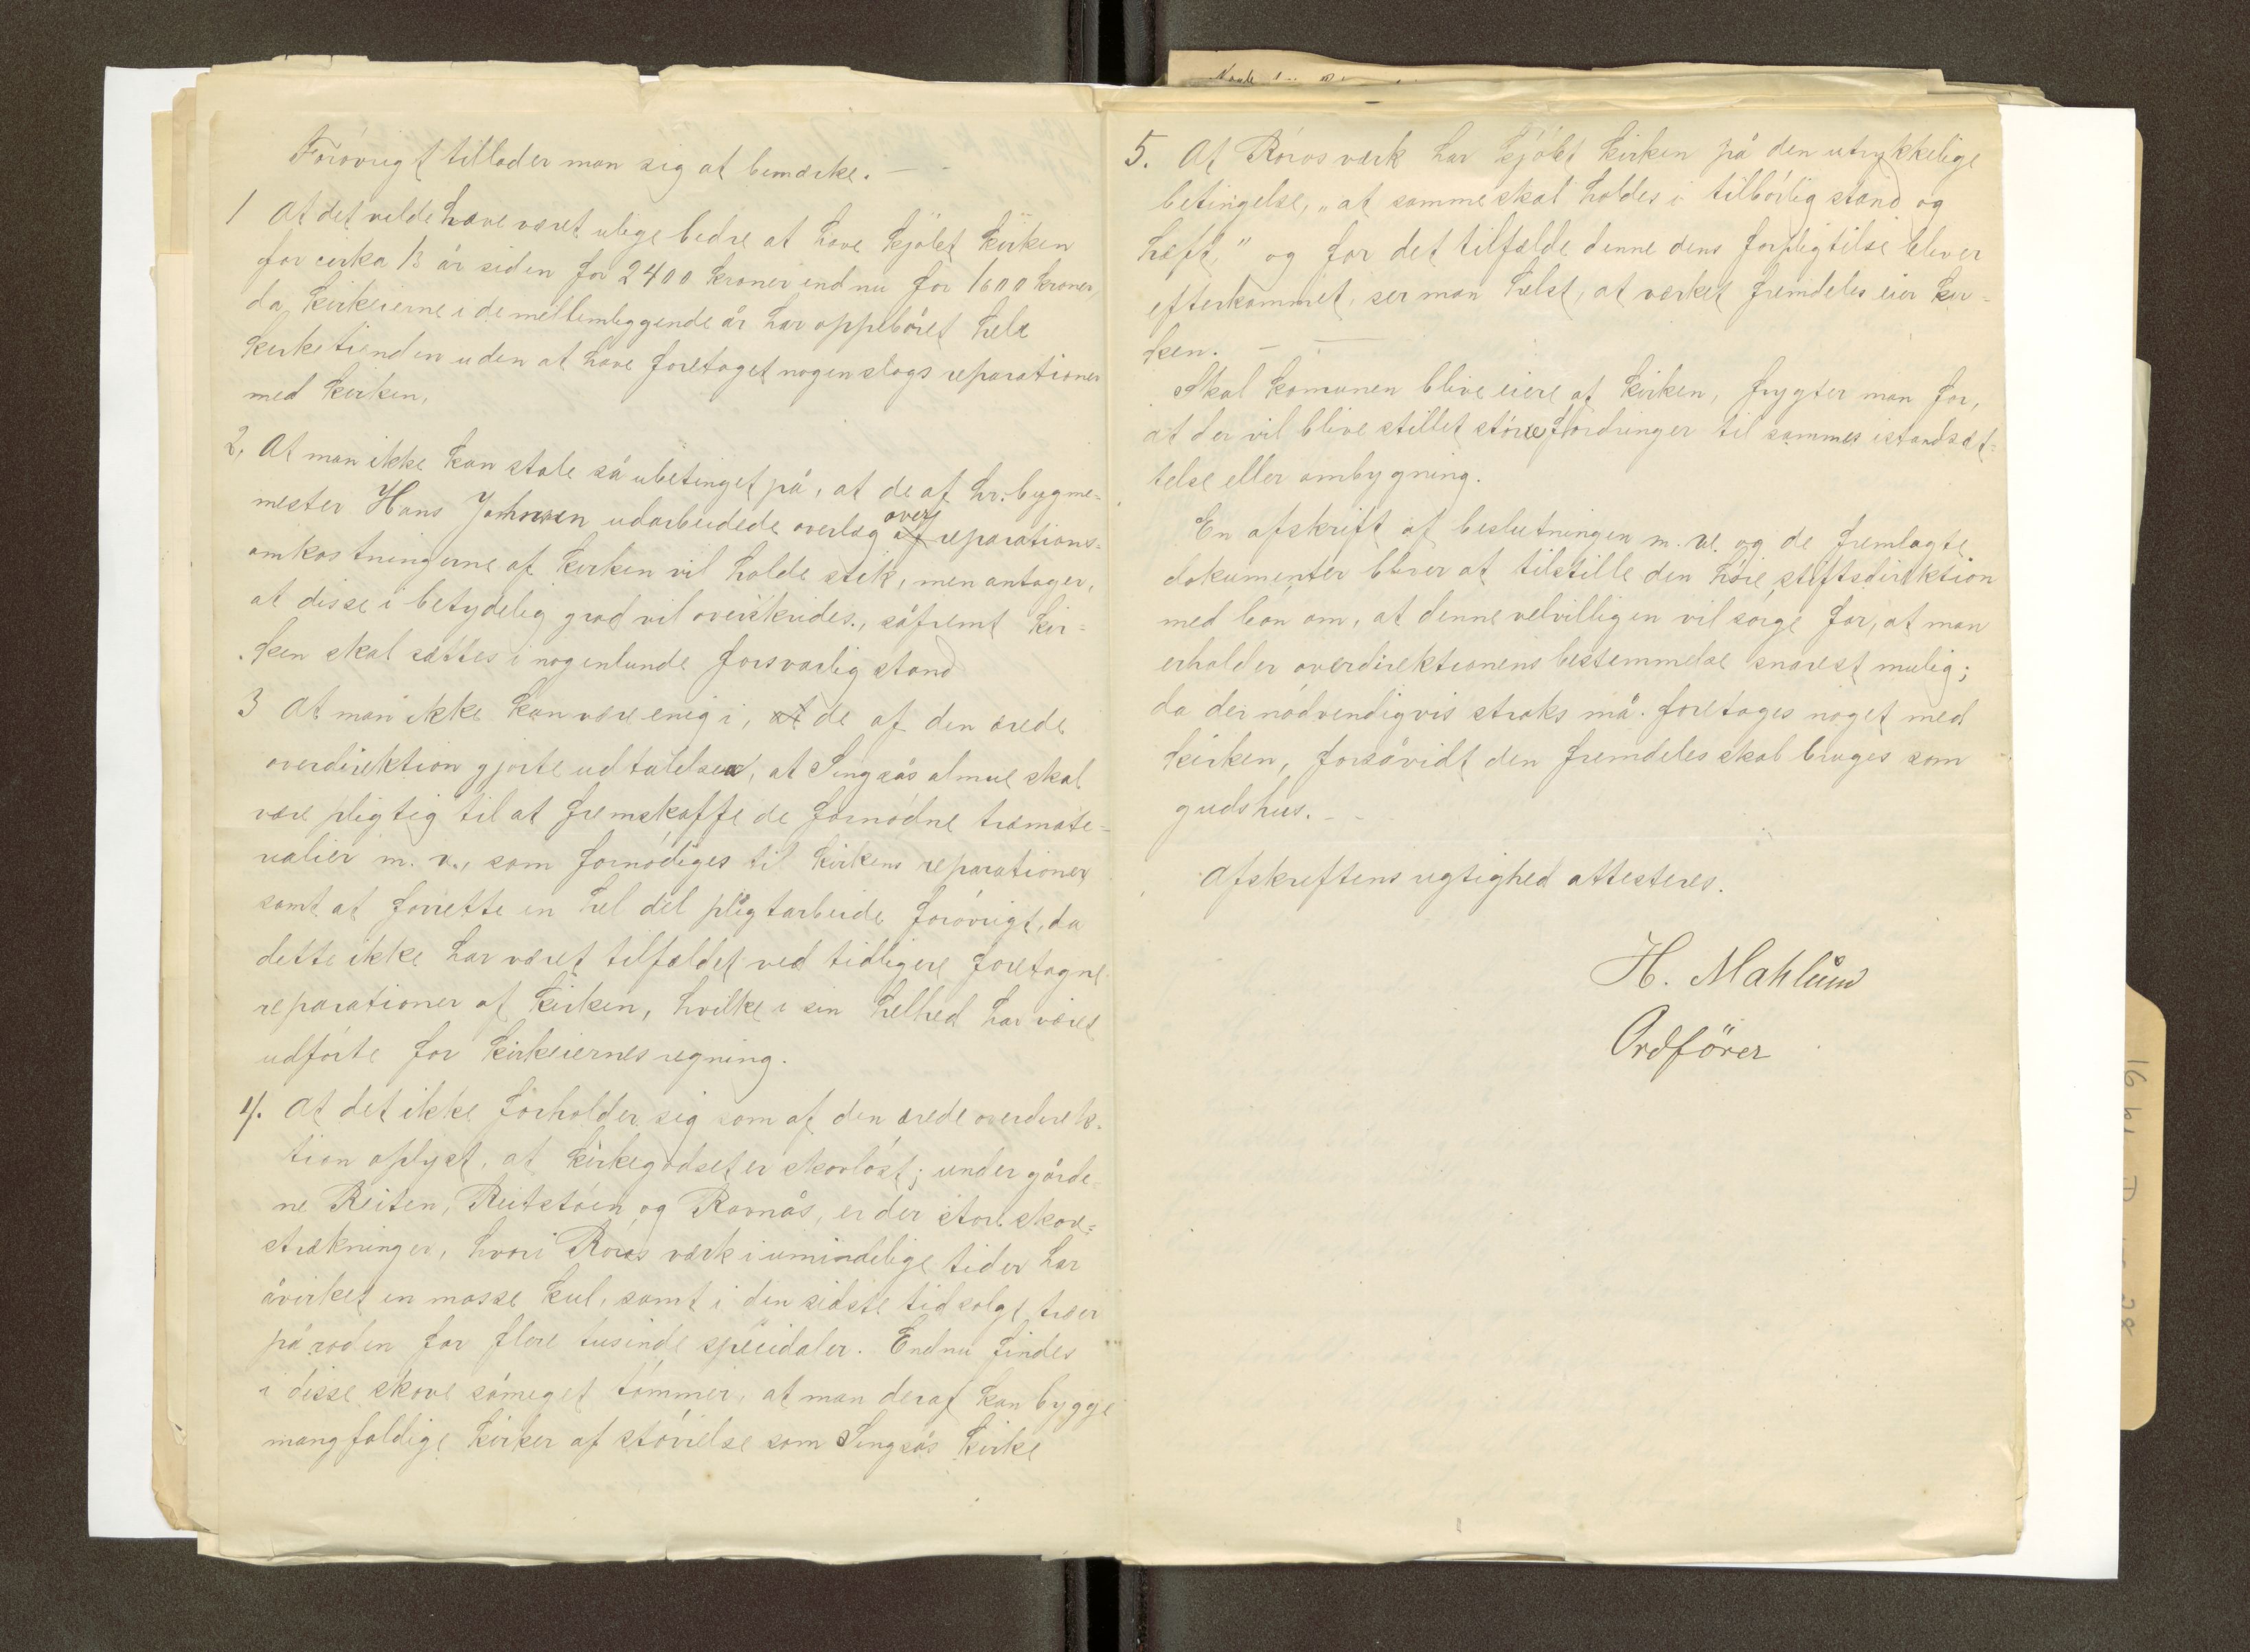 Forøvrigt tillader man sig at bemærke. —
1 At det vilde have været ulige bedre at have kjøbt kirken
for cirka 13 år siden for 2400 kroner end nu for 1600 kroner,
da kirkeierne i de mellemliggende år har oppebåret hele
kirketienden uden at have foretaget nogenslags reparationer
med kirken.
2. At man ikke kan stole så ubetinget på, at de af hr. bygme=
mester Hans Johnsen udarbeidede overlag over reparations=
omkostningerne af kirken vil holde stik, men antager,
at disse i betydelig grad vil overskrides, såfremt kir=
ken skal sættes i nogenlunde forsvarlig stand
3 At man ikke kan være enig i, de af den ærede
overdirektion gjorte udtalelser, at Singsås almue skal
være pligtig til at fremskaffe de fornødne træmate=
rialier m. v., som fornødiges til kirkens reparationer
samt at forrette en hel del pligtarbeide forøvrigt, da
dette ikke har været tilfældet ved tidligere foretagne
reparationer af kirken, hvilke i sin helhed har været
udførte for kirkeiernes regning.
4. At det ikke forholder sig som af den ærede overdirek=
tion oplyst, at kirkegodset er skovløst; under gårde=
ne Reiten, Reitstøen og Ravnås, er der store skov=
strækninger, hvori Røros værk i umindelige tider har
åvirket en masse kul, samt i den sidste tid solgt træer
på roden for flere tusinde specidaler. Endnu findes
i disse skove såmeget tømmer, at man deraf kan bygge
mangfoldige kirker af størrelse som Singsås kirke
5. At Røros værk har kjøbt kirken på den utrykkelige
betingelse, „at samme skal holdes i tilbørlig stand og
hæft," og for det tilfælde denne dens forpligtelse bliver
efterkommet, ser man helst, at værket fremdeles eier kir=
ken. —
Skal komunen blive eiere af kirken, frygter man for,
at der vil blive stillet større fordringer til sammes istandsæt=
telse eller ombygning.
En afskrift af beslutningen m. v. og de fremlagte
dokumenter bliver at tilstille den høie stiftsdirektion
med bøn om, at denne velvilligen vil sørge for, at man
erholder overdirektionens bestemmelse snarest mulig;
da der nødvendigvis straks må foretages noget med
kirken, forsåvidt den fremdeles skal bruges som
gudshus. —
Afskriftens rigtighed attesteres.
H. Mahlum
Ordfører